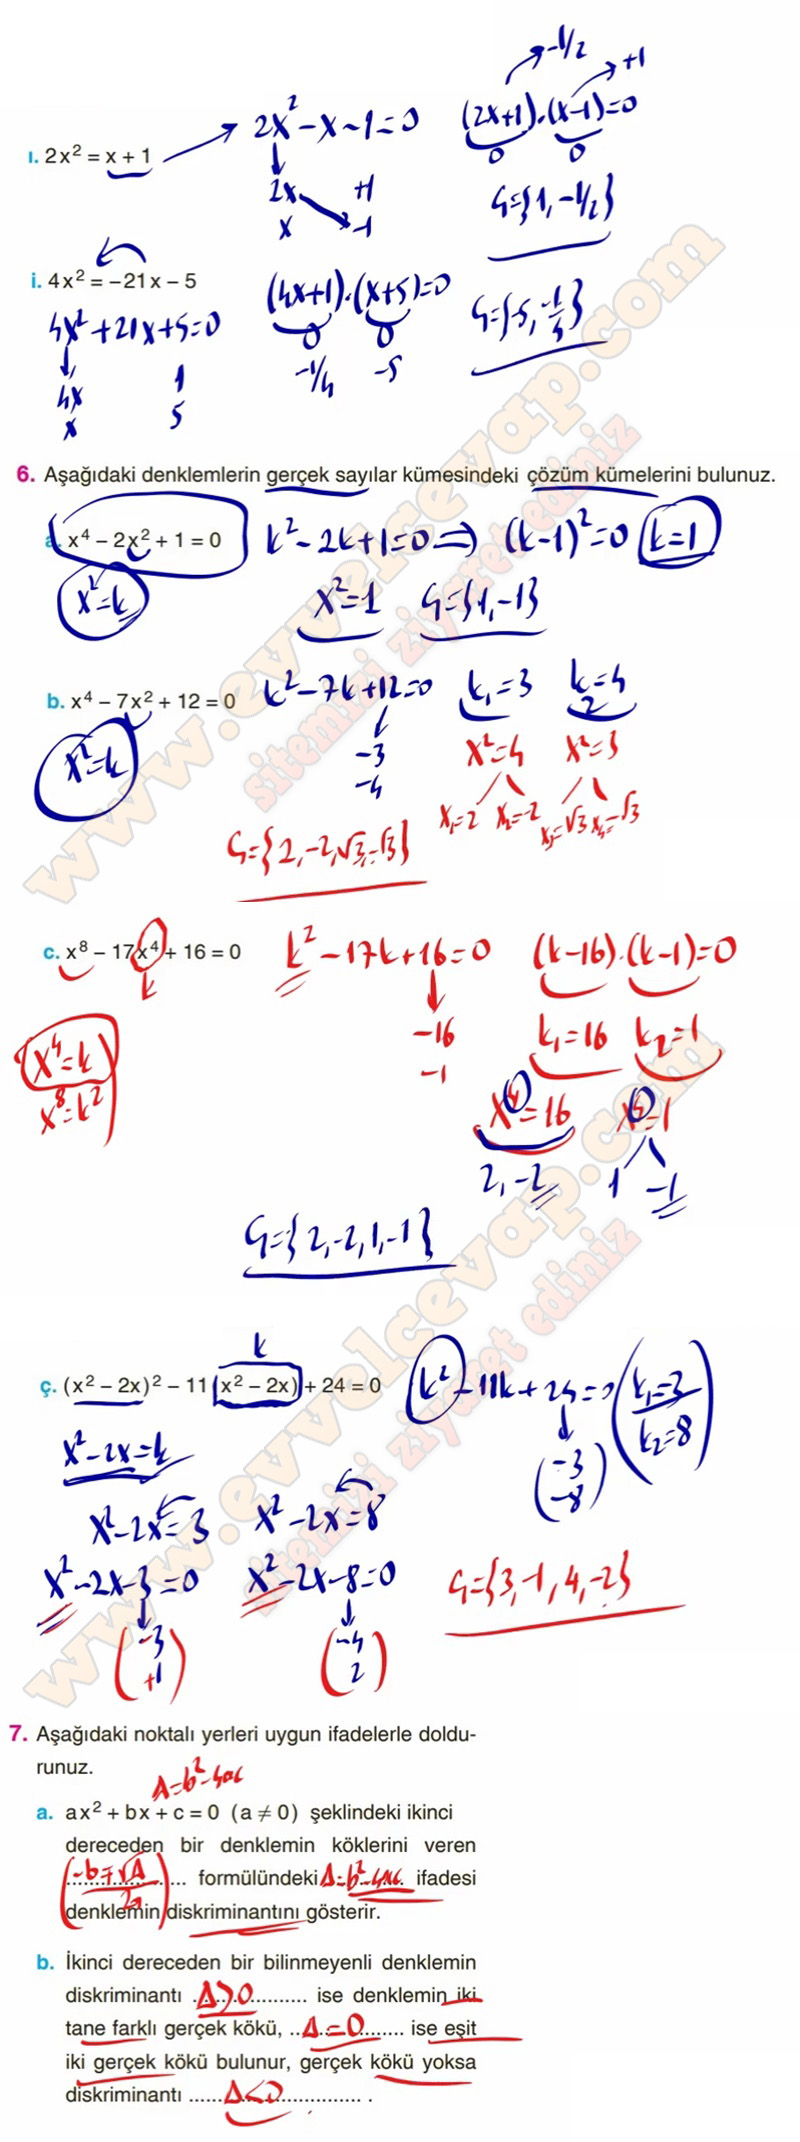 ı. 2x² = x + 1
2x² − x − 1 = 0
2x +1
x −1
(2x+1).(x−1)=0
−1/2 +1
0 0
Ç={1, −1/2}
i. 4x² = −21x − 5
4x² + 21x + 5 = 0
4x 1
x 5
(4x+1).(x+5)=0
0 0
−1/4 −5
Ç={−5, −1/4}
6. Aşağıdaki denklemlerin gerçek sayılar kümesindeki çözüm kümelerini bulunuz.
a. x⁴ − 2x² + 1 = 0
k² − 2k + 1 = 0 ⇒ (k−1)² = 0 k=1
x²=k
x²=1 Ç={1, −1}
b. x⁴ − 7x² + 12 = 0
k² − 7k + 12 = 0 k₁=3 k₂=4
−3
−4
x²=k
x²=4 x²=3
x₁=2 x₂=−2 x₃=√3 x₄=−√3
Ç={2, −2, √3, −√3}
c. x⁸ − 17x⁴ + 16 = 0
k
k² − 17k + 16 = 0 (k−16).(k−1)=0
−16
−1
k₁=16 k₂=1
x⁴=k
x⁸=k²
x⁴=16 x⁴=1
2, −2 1 −1
Ç={2, −2, 1, −1}
k
ç. (x² − 2x)² − 11(x² − 2x) + 24 = 0
k² − 11k + 24 = 0 k₁=3
k₂=8
−3
−8
x² − 2x = k
x² − 2x = 3 x² − 2x = 8
x² − 2x − 3 = 0 x² − 2x − 8 = 0
−3 −4
+1 2
Ç={3, −1, 4, −2}
7. Aşağıdaki noktalı yerleri uygun ifadelerle doldu-
runuz.
Δ=b²−4ac
a. ax² + bx + c = 0 (a ≠ 0) şeklindeki ikinci
dereceden bir denklemin köklerini veren
(−b∓√Δ)/2a ... formülündeki Δ=b²−4ac ifadesi
denklemin diskriminantını gösterir.
b. İkinci dereceden bir bilinmeyenli denklemin
diskriminantı ..Δ>0.......... ise denklemin iki
tane farklı gerçek kökü, ..Δ=0........ ise eşit
iki gerçek kökü bulunur, gerçek kökü yoksa
diskriminantı ......Δ<0.............. .
www.evvelcevap.com
sitemizi ziyaret ediniz
www.evvelcevap.com
sitemizi ziyaret ediniz